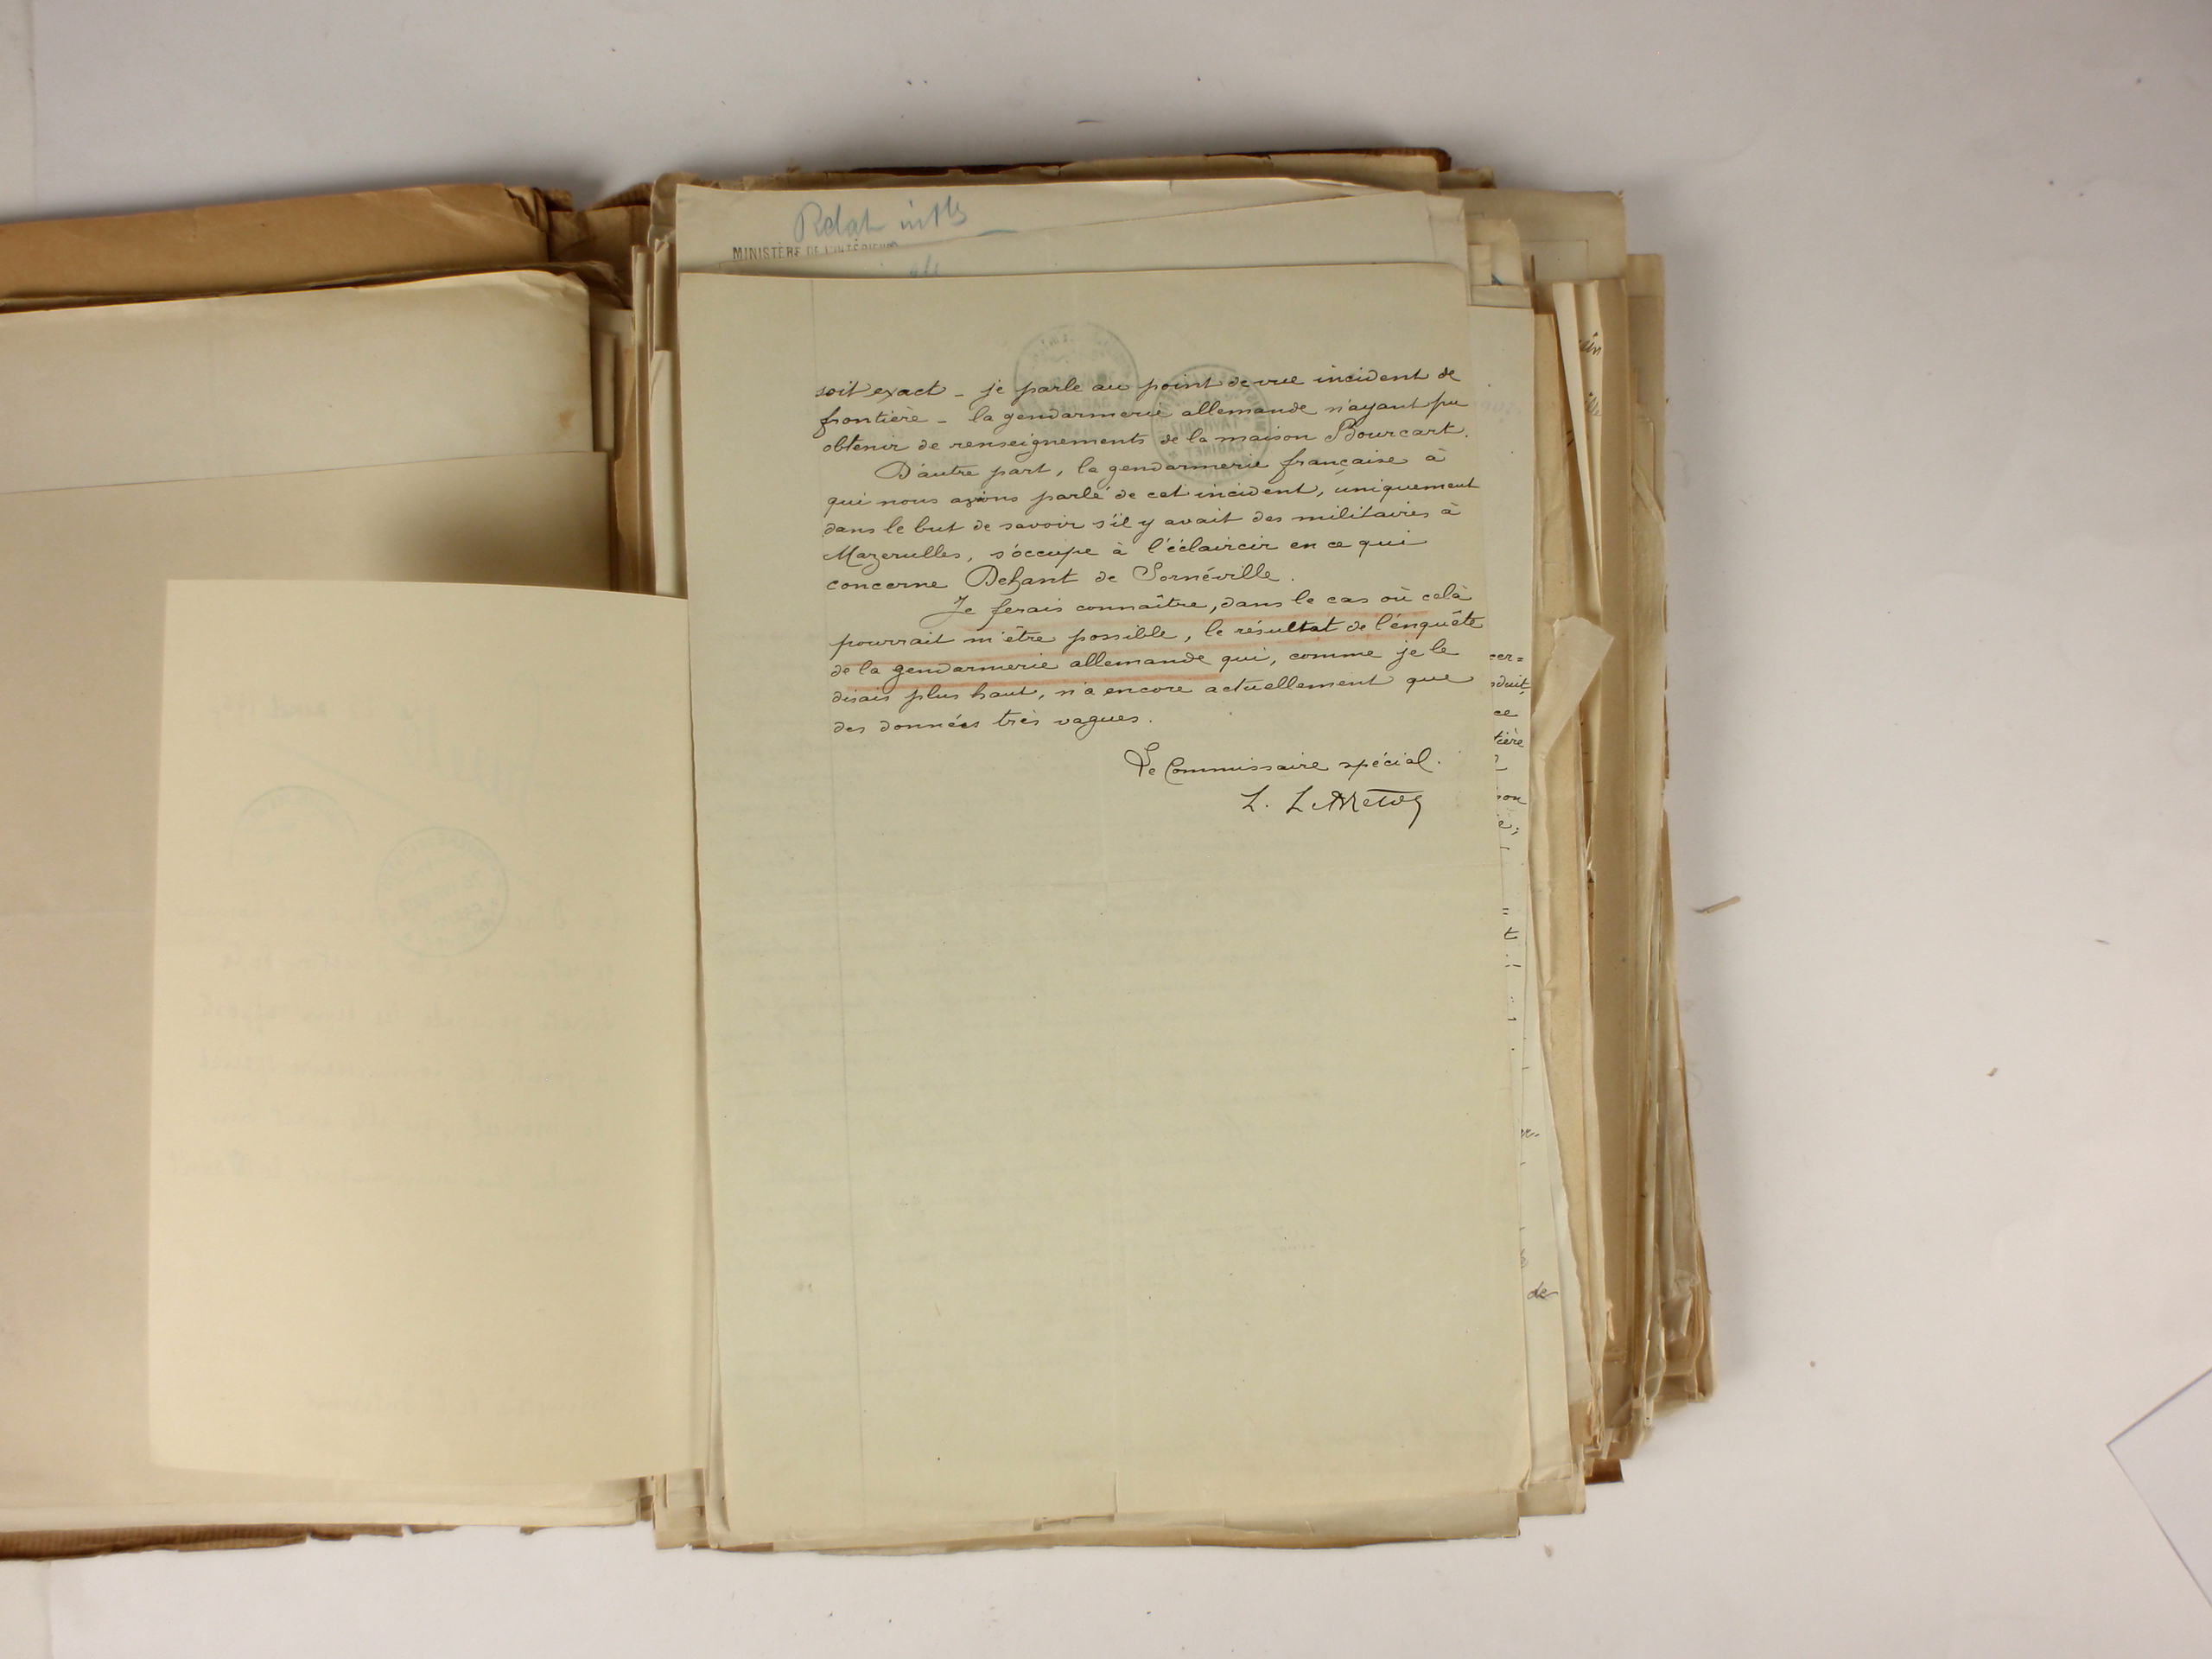 Relat
MINISTÈRE DE L'INTÉRIEUR
soit exact _ je parle au point de vue incident de
frontière _ la gendarmerie allemande n'ayant pu
obtenir de renseignements de la maison Bourcart.
D'autre part, la gendarmerie française à
qui nous avions parlé de cet incident, uniquement
dans le but de savoir s'il y avait des militaires à
Mazerulles, s'occupe à l'éclaircir en ce qui
concerne Dehant de Sornéville.
Je ferais connaître, dans le cas où celà
pourrait m'être possible, le résultat de l'enquête
de la gendarmerie allemande qui, comme je le
disais plus haut, n'a encore actuellement que
des données très vagues.
Le Commissaire spécial.
de